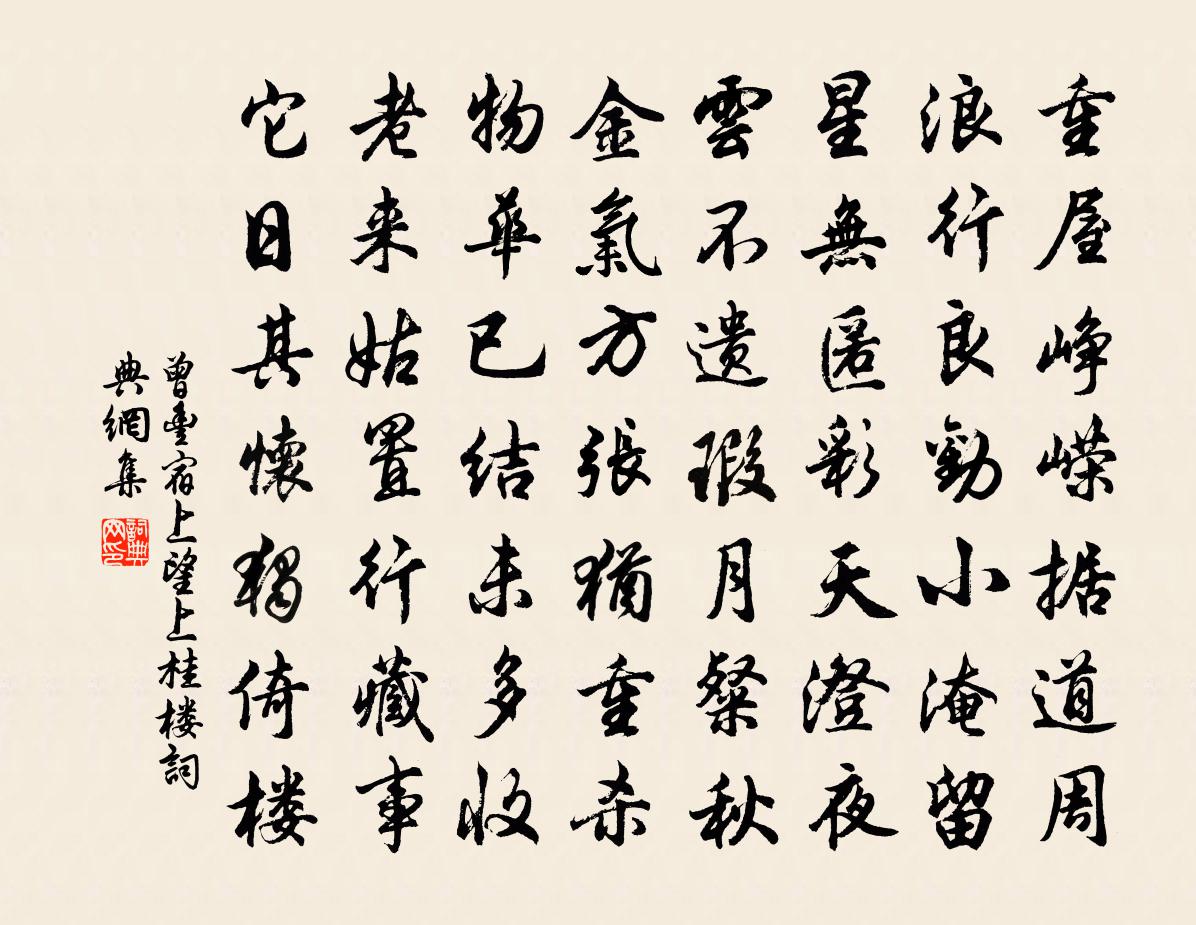 重屋峥嵘据道周
浪行良勤小淹留
星無匿彩天澄夜
雲不遗瑕月粲秋
金氣方張猶重杀
物華已结未多收
老来姑置行藏事
它日其懷獨倚楼
曾豊宿上望上桂楼詞
典網集
詞典网印